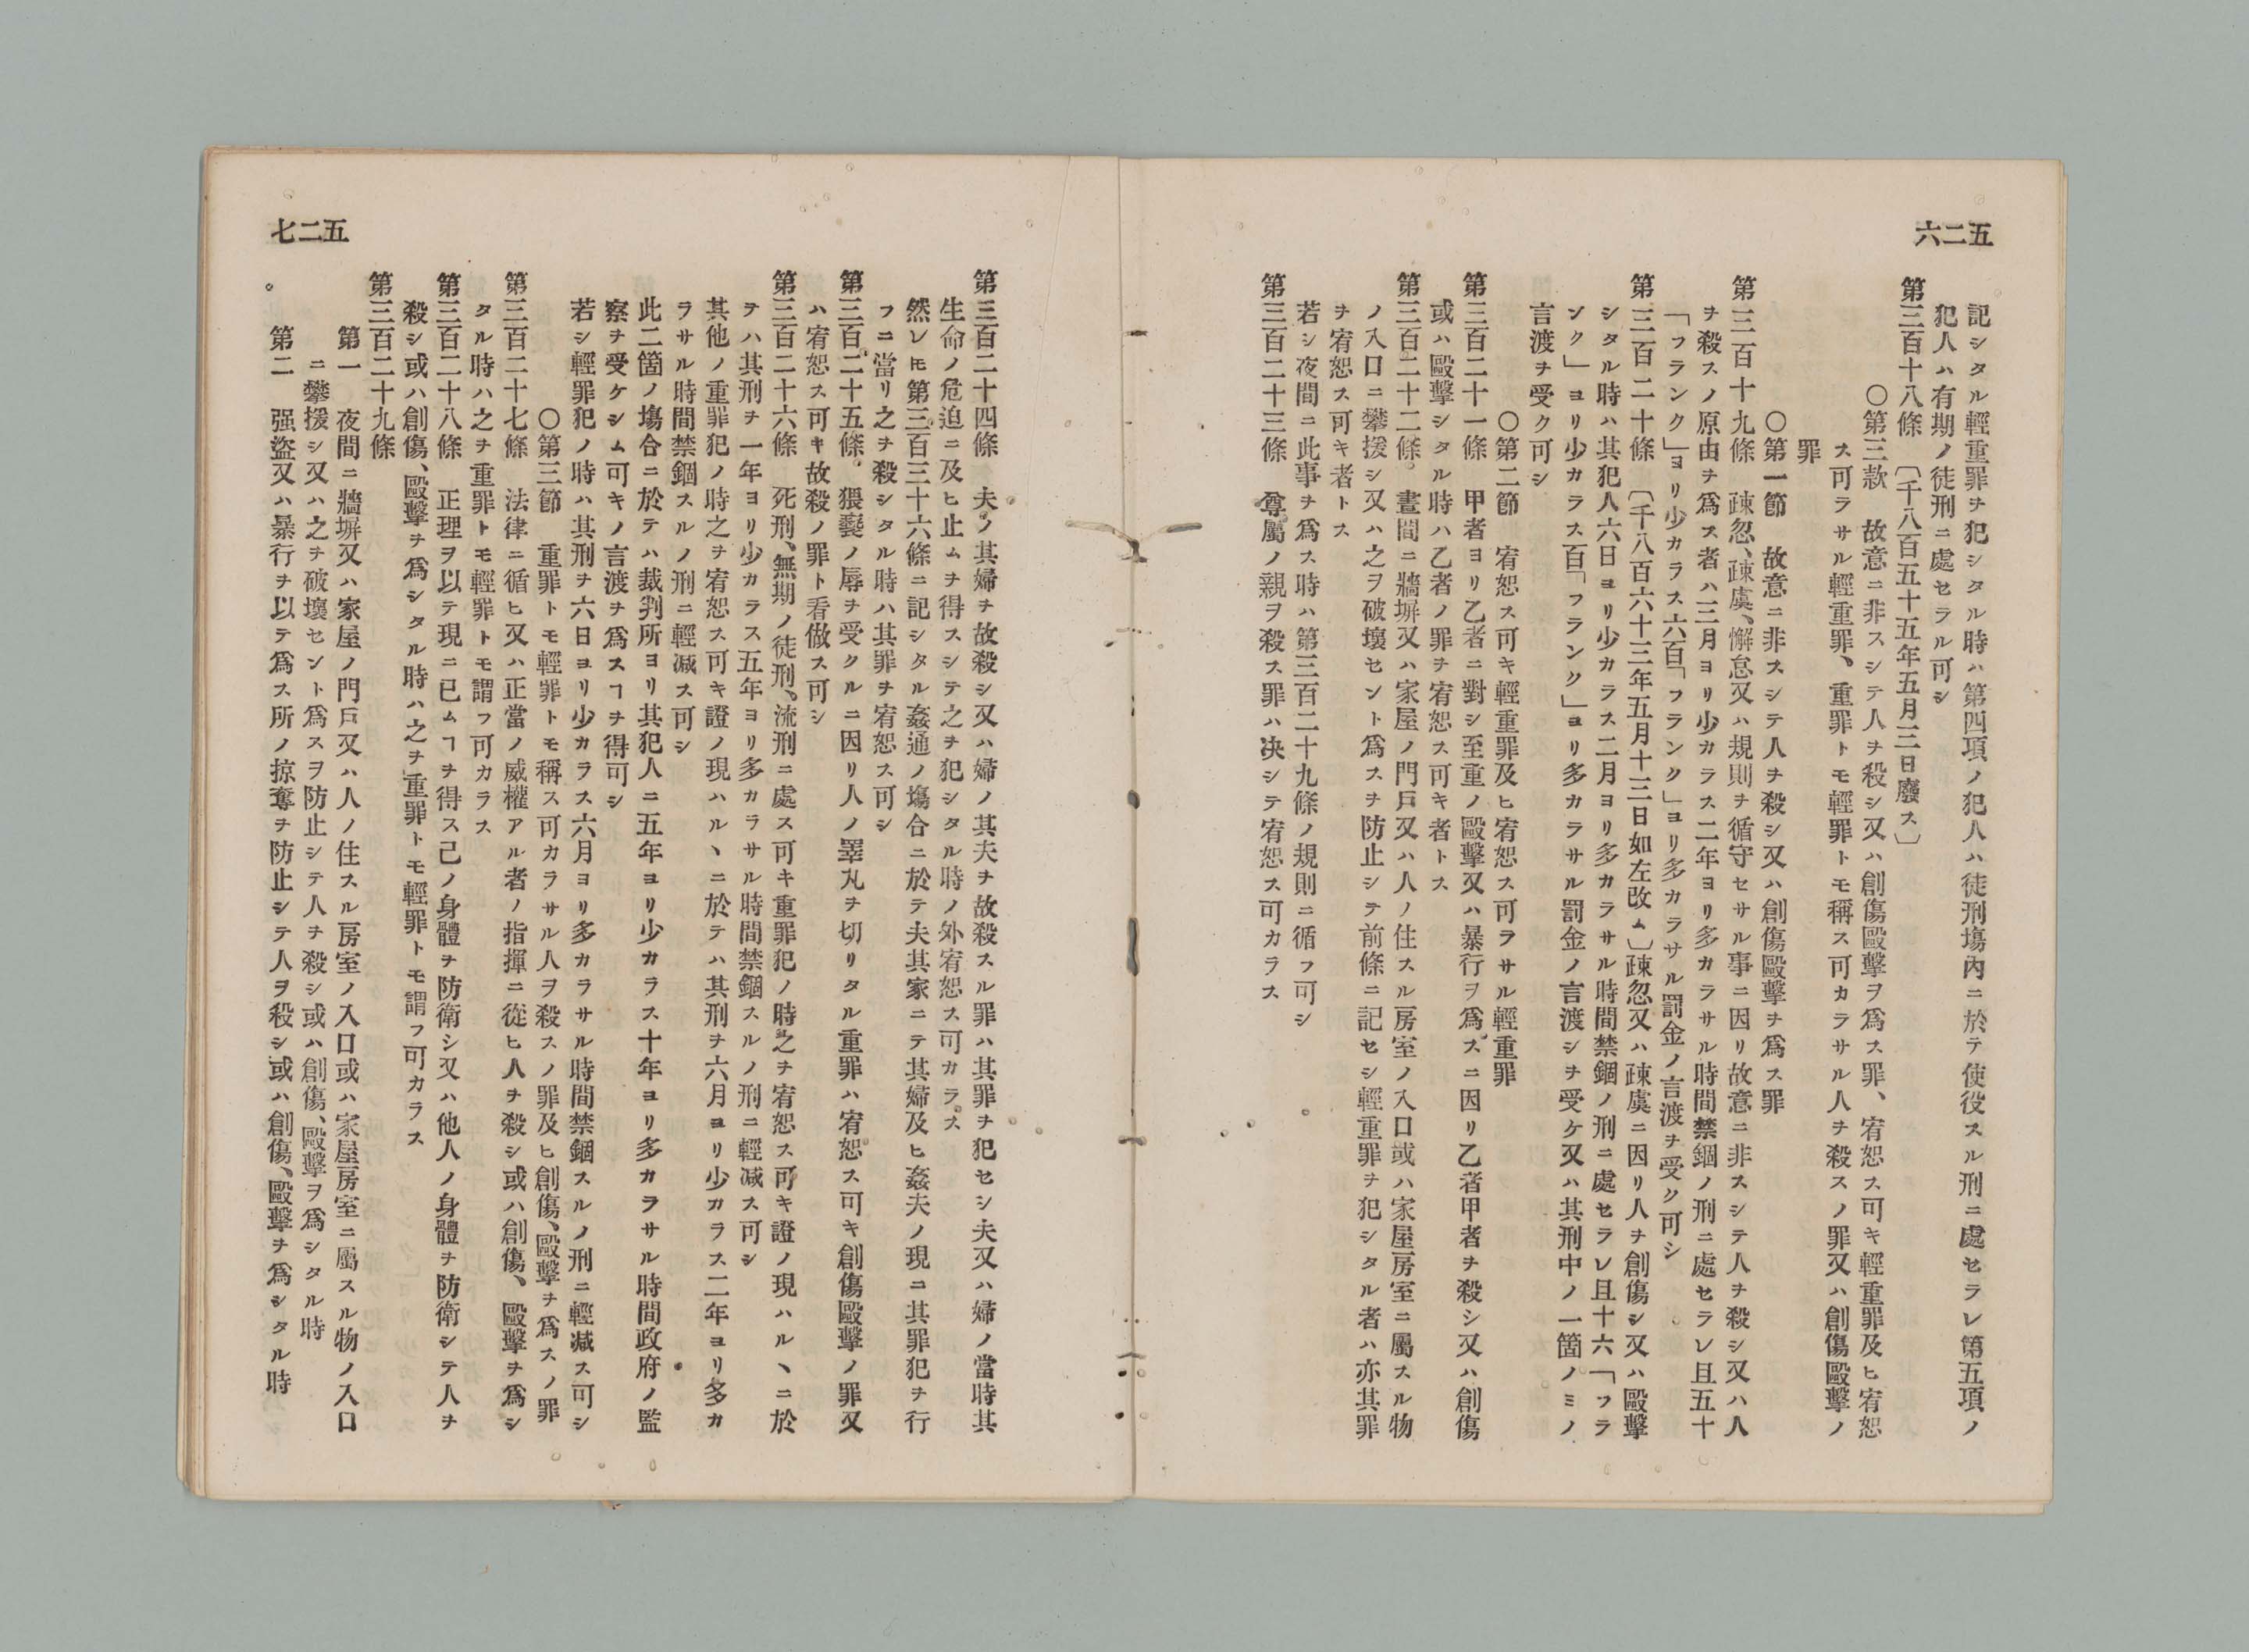 五二六
記シタル輕重罪ヲ犯シタル時ハ第四項ノ犯人ハ徒刑塲内ニ於テ使役スル刑ニ處セラレ第五項ノ
犯人ハ有期ノ徒刑ニ處セラル可シ
第三百十八條　〔千八百五十五年五月三日廢ス〕
○第三款　故意ニ非スシテ人ヲ殺シ又ハ創傷毆擊ヲ爲ス罪、宥恕ス可キ輕重罪及ヒ宥恕
ス可ラサル輕重罪、重罪トモ輕罪トモ稱ス可カラサル人ヲ殺スノ罪又ハ創傷毆擊ノ
罪
○第一節　故意ニ非スシテ人ヲ殺シ又ハ創傷毆擊ヲ爲ス罪
第三百十九條　疎忽、疎虞、懈怠又ハ規則ヲ循守セサル事ニ因リ故意ニ非スシテ人ヲ殺シ又ハ人
ヲ殺スノ原由ヲ爲ス者ハ三月ヨリ少カラス二年ヨリ多カラサル時間禁錮ノ刑ニ處セラレ且五十
「フランク」ヨリ少カラス六百「フランク」ヨリ多カラサル罰金ノ言渡ヲ受ク可シ
第三百二十條　〔千八百六十三年五月十三日如左改ム〕疎忽又ハ疎虞ニ因リ人ヲ創傷シ又ハ毆擊
シタル時ハ其犯人六日ヨリ少カラス二月ヨリ多カラサル時間禁錮ノ刑ニ處セラレ且十六「フラ
ンク」ヨリ少カラス百「フランク」ヨリ多カラサル罰金ノ言渡シヲ受ケ又ハ其刑中ノ一箇ノミノ
言渡ヲ受ク可シ
○第二節　宥恕ス可キ輕重罪及ヒ宥恕ス可ラサル輕重罪
第三百二十一條　甲者ヨリ乙者ニ對シ至重ノ毆擊又ハ暴行ヲ爲スニ因リ乙者甲者ヲ殺シ又ハ創傷
或ハ毆擊シタル時ハ乙者ノ罪ヲ宥恕ス可キ者トス
第三百二十二條　晝間ニ牆塀又ハ家屋ノ門戸又ハ人ノ住スル房室ノ入口或ハ家屋房室ニ屬スル物
ノ入口ニ攀援シ又ハ之ヲ破壞セント爲スヲ防止シテ前條ニ記セシ輕重罪ヲ犯シタル者ハ亦其罪
ヲ宥恕ス可キ者トス
若シ夜間ニ此事ヲ爲ス時ハ第三百二十九條ノ規則ニ循フ可シ
第三百二十三條　尊屬ノ親ヲ殺ス罪ハ决シテ宥恕ス可カラス
五二七
第三百二十四條　夫ノ其婦ヲ故殺シ又ハ婦ノ其夫ヲ故殺スル罪ハ其罪ヲ犯セシ夫又ハ婦ノ當時其
生命ノ危迫ニ及ヒ止ムヲ得スシテ之ヲ犯シタル時ノ外宥恕ス可カラス
然レ𪜈第三百三十六條ニ記シタル姦通ノ塲合ニ於テ夫其家ニテ其婦及ヒ姦夫ノ現ニ其罪犯ヲ行
フニ當リ之ヲ殺シタル時ハ其罪ヲ宥恕ス可シ
第三百二十五條　猥褻ノ辱ヲ受クルニ因リ人ノ睪丸ヲ切リタル重罪ハ宥恕ス可キ創傷毆擊ノ罪又
ハ宥恕ス可キ故殺ノ罪ト看做ス可シ
第三百二十六條　死刑、無期ノ徒刑、流刑ニ處ス可キ重罪犯ノ時之ヲ宥恕ス可キ證ノ現ハルヽニ於
テハ其刑ヲ一年ヨリ少カラス五年ヨリ多カラサル時間禁錮スルノ刑ニ輕减ス可シ
其他ノ重罪犯ノ時之ヲ宥恕ス可キ證ノ現ハルヽニ於テハ其刑ヲ六月ヨリ少カラス二年ヨリ多カ
ラサル時間禁錮スルノ刑ニ輕减ス可シ
此二箇ノ塲合ニ於テハ裁判所ヨリ其犯人ニ五年ヨリ少カラス十年ヨリ多カラサル時間政府ノ監
察ヲ受ケシム可キノ言渡ヲ爲スヿヲ得可シ
若シ輕罪犯ノ時ハ其刑ヲ六日ヨリ少カラス六月ヨリ多カラサル時間禁錮スルノ刑ニ輕减ス可シ
○第三節　重罪トモ輕罪トモ稱ス可カラサル人ヲ殺スノ罪及ヒ創傷、毆擊ヲ爲スノ罪
第三百二十七條　法律ニ循ヒ又ハ正當ノ威權アル者ノ指揮ニ從ヒ人ヲ殺シ或ハ創傷、毆擊ヲ爲シ
タル時ハ之ヲ重罪トモ輕罪トモ謂フ可カラス
第三百二十八條　正理ヲ以テ現ニ已ムヿヲ得ス己ノ身體ヲ防衛シ又ハ他人ノ身體ヲ防衛シテ人ヲ
殺シ或ハ創傷、毆擊ヲ爲シタル時ハ之ヲ重罪トモ輕罪トモ謂フ可カラス
第三百二十九條
第一　夜間ニ牆塀又ハ家屋ノ門戸又ハ人ノ住スル房室ノ入口或ハ家屋房室ニ屬スル物ノ入口
ニ攀援シ又ハ之ヲ破壞セント爲スヲ防止シテ人ヲ殺シ或ハ創傷、毆擊ヲ爲シタル時
第二　强盜又ハ暴行ヲ以テ爲ス所ノ掠奪ヲ防止シテ人ヲ殺シ或ハ創傷、毆擊ヲ爲シタル時